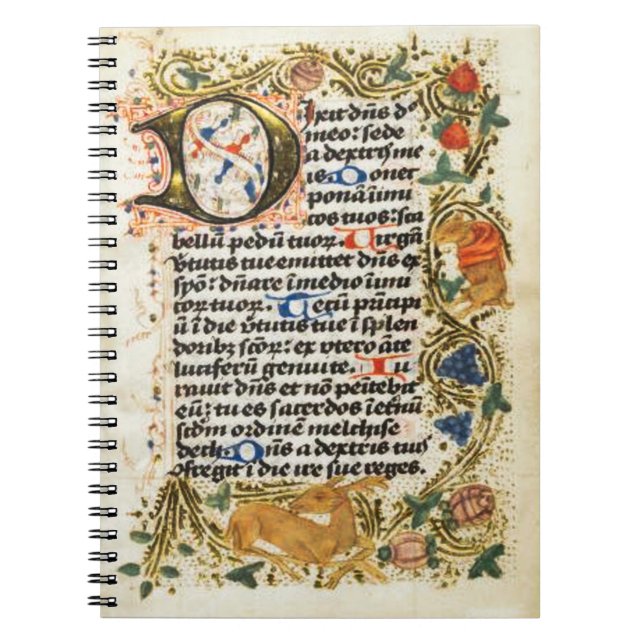 Dixit dn̄s d̄o
meo: sede
a dextris me
is. Donec
ponā īimi
cos tuos: sca
bellū pedū tuoꝝ. Uirgā
v̄tutis tue emittet dn̄s ex
syō: dn̄are ī medio īimi
coꝝ tuoꝝ. Tecū prīcipi
ū ī die v̄tutis tue ī splen
doribꝫ sc̄oꝝ: ex vtero āte
luciferū genui te. Iu
rauit dn̄s et nō penitebit
eū: tu es sacerdos ī et̄nū
scd̄m ordinē melchise
dech. Dn̄s a dextris tuis
ɔfregit ī die ire sue reges.